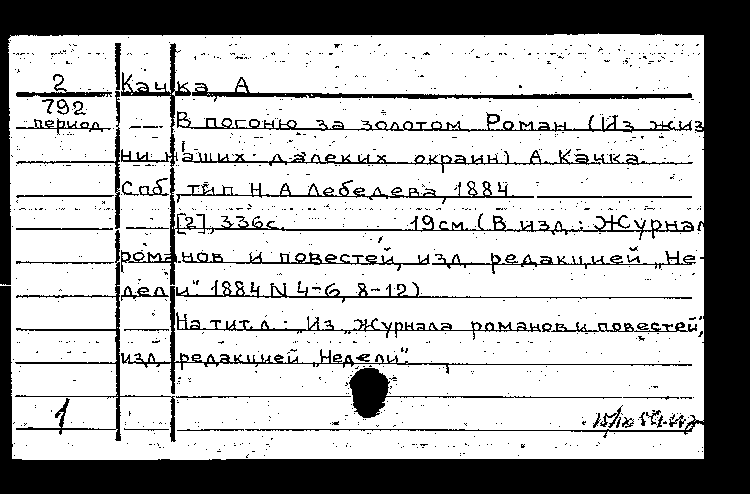 2 Качка, А
792
период
В погоню за золотом. Роман (Из жиз
ни наших далеких окраин) А. Качка.
Спб, тип. Н. А. Лебедева, 1884.
[2], 336с. 19см. (В изд.: Журнал
романов и повестей, изд. редакцией „Не-
дели" 1884 N 4-6, 8-12)
На тит. л.: „Из „Журнала романов и повестей",
изд. редакцией „Недели".
1